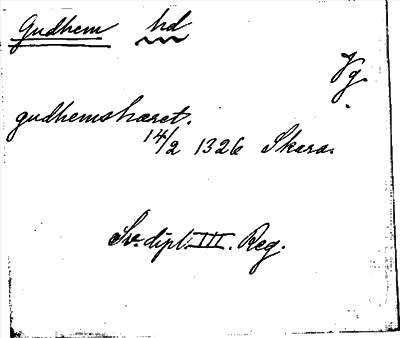 Gudhem hd
Vg.
gudhemshæret.
14/2 1326 Skara.
Sv. dipl. III. Reg.